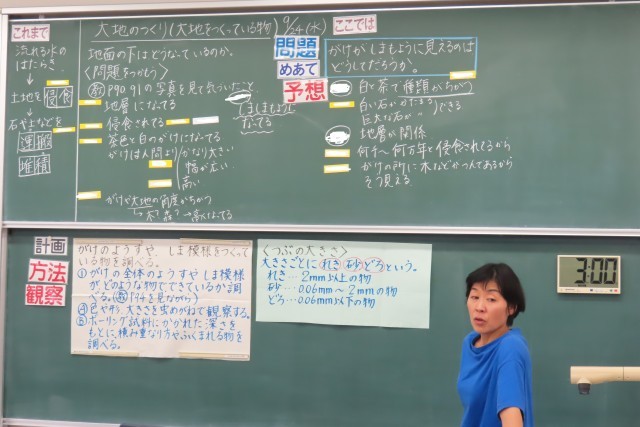 これまで
流れる水の
はたらき
↓
土地を侵食
↓
石や土などを
運搬
堆積
大地のつくり(大地をつくっている物) 9/24(水)
地面の下はどうなっているのか。
〈問題をつかもう〉
P90.91の写真を見て気づいたこと
地層になってる
しましまもように
なってる
侵食されてる
茶色と白のがけになってる
がけは人間よりかなり大きい
幅が広い
高い
がけや大地の角度がちがう
ここでは
問題
がけがしまもように見えるのは
どうしてだろうか。
めあて
予想
白と茶で種類がちがう
白い石がかたまる
巨大な石が
できる
地層が関係
何千~何万年と侵食されてるから
がけの所に木などがつんであるから
そう見える
計画
方法
観察
がけのようすや、しま模様をつくって
いる物を調べる。
①がけの全体のようすやしま模様
がどのような物でできているか調
べる。(P94を見ながら)
色や形、大きさを虫めがねで観察する。
ボーリング試料にかかれた深さを
もとに、積み重なり方やふくまれる物を
調べる。
〈つぶの大きさ〉
大きさごとに れき 砂 どろ という。
れき…2mm以上の物
砂…0.06mm~2mmの物
どろ…0.06mm以下の物
3:00